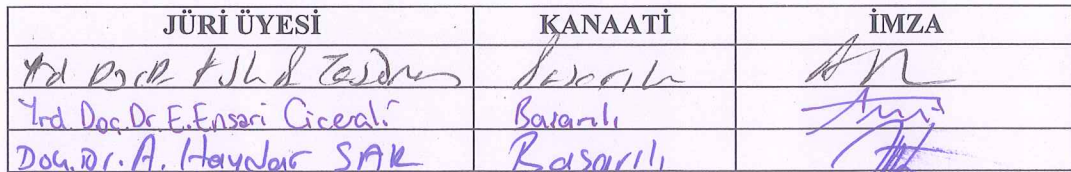 JÜRİ ÜYESİ KANAATİ İMZA
Yrd Doç Dr Başarılı
Yrd. Doç. Dr. E. Ensari Cicerali Başarılı
Doç. Dr. A. Haydar SAR Başarılı